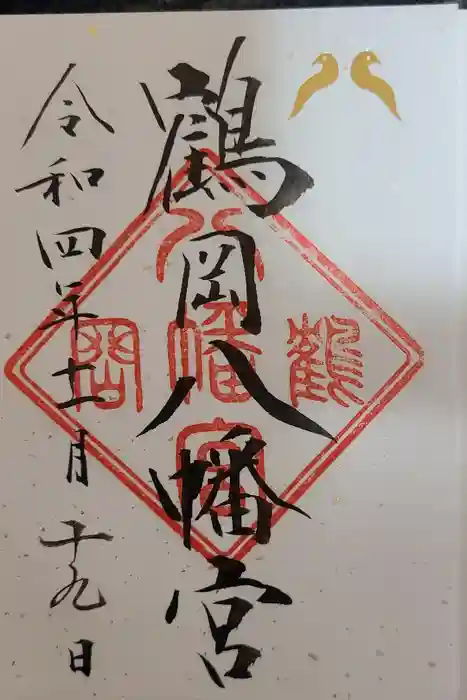 鶴岡八幡宮
令和四年十一月十九日
鶴岡
八幡宮